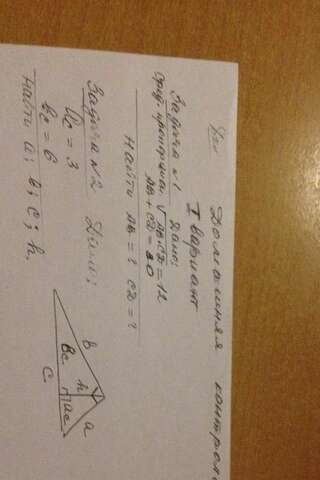 Домашняя контроль
I вариант
Задача №1 Дано:
Сред. пропорцион. √AB·CD = 12
AB + CD = 30
Найти AB = ? CD = ?
Задача №2 Дано:
ac = 3
bc = 6
Найти a; b; c; h.
b
a
h
Bc
ac
C